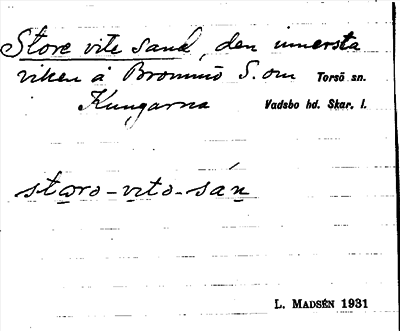 Store vite sand, den innersta
viken å Brommö S. om Torsö sn.
Kungarna Vadsbo hd. Skar. l.
storo-vito-sán
L. MADSÉN 1931